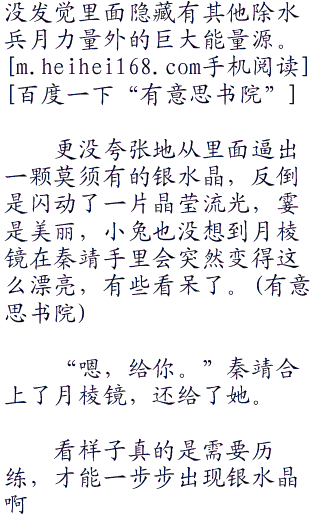 没发觉里面隐藏有其他除水
兵月力量外的巨大能量源。
[m.heihei168.com手机阅读]
[百度一下“有意思书院”]
更没夸张地从里面逼出
一颗莫须有的银水晶，反倒
是闪动了一片晶莹流光，霎
是美丽，小兔也没想到月棱
镜在秦靖手里会突然变得这
么漂亮，有些看呆了。(有意
思书院)
“嗯，给你。”秦靖合
上了月棱镜，还给了她。
看样子真的是需要历
练，才能一步步出现银水晶
啊